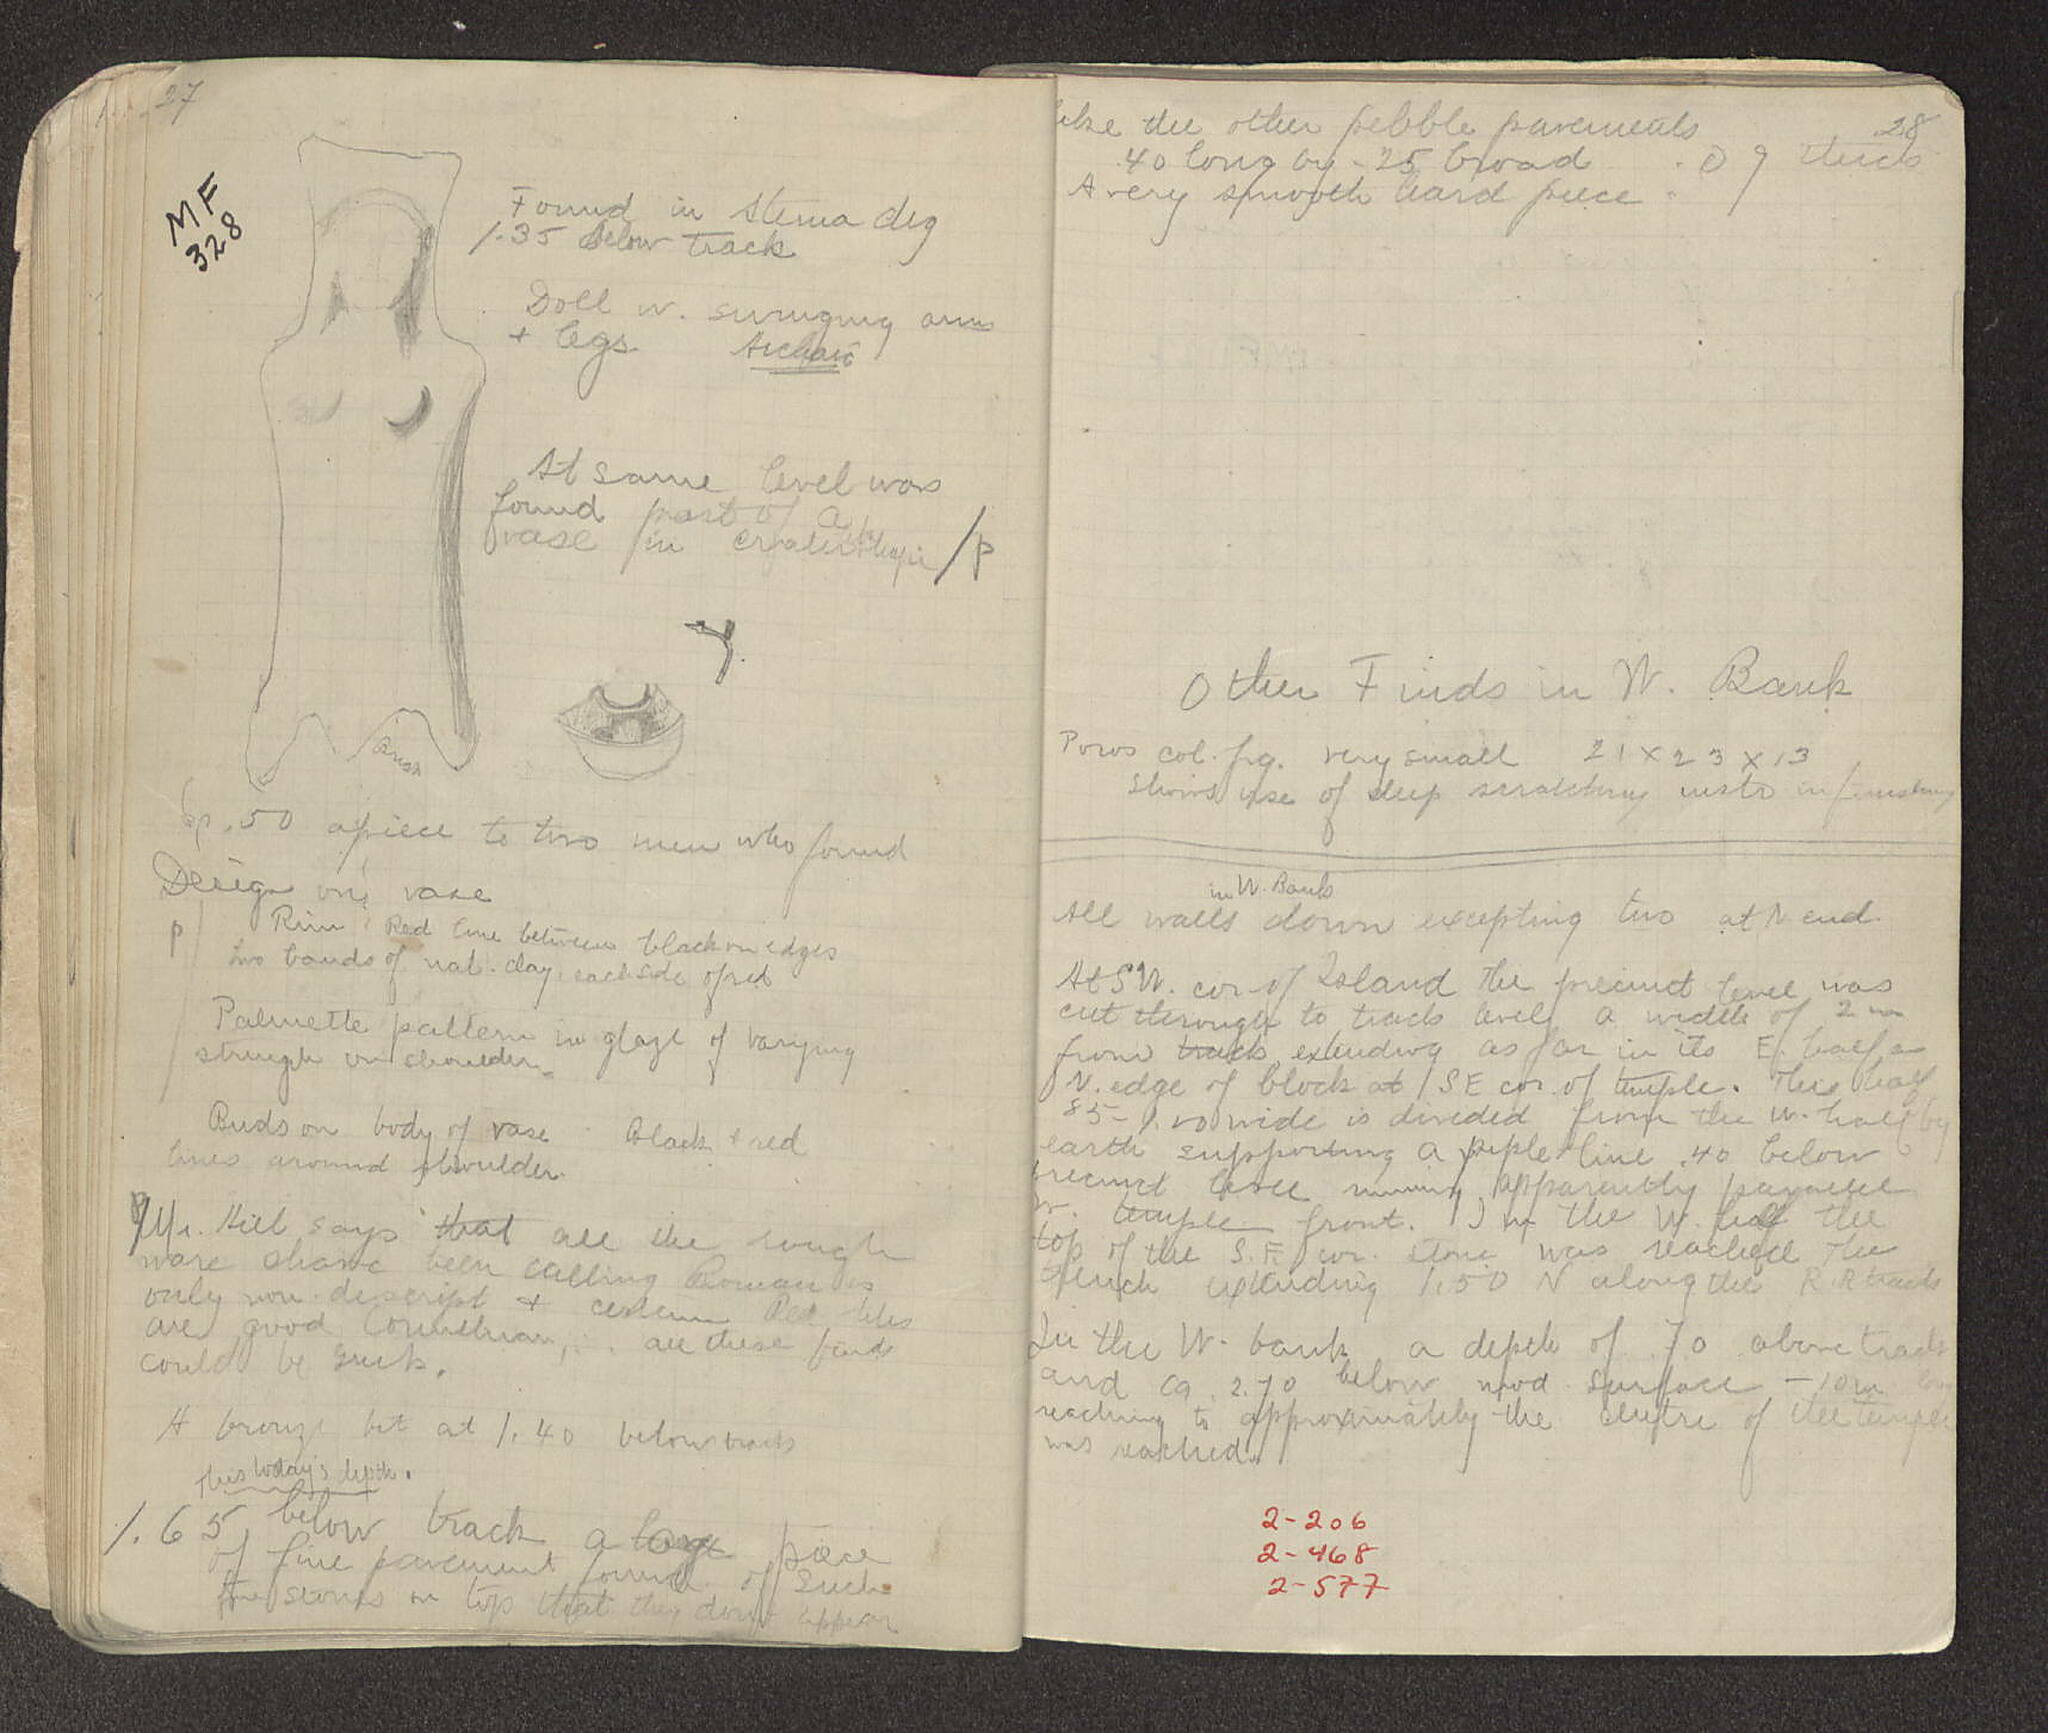 27
MF
328
Found in stema dig
1.35 below track
Doll w. swinging arms
+ legs Archaic
At same level was
found part of a
vase in crater shape / p
Dr. 50 apiece to two men who found
Design on vase
p Rim: Red line between black on edges
two bands of nat. clay each side of red
Palmette pattern in glaze of varying
strength on shoulder
Buds on body of vase black + red
lines around shoulder.
Mr. Hill says that all the rough
ware I have been calling Roman is
only non-descript + certain Red tiles
are good Corinthian, ∴ all these finds
could be Greek.
A bronze bit at 1.40 below track
This today's depth.
1.65 below track a large piece
of fine pavement found of such
fine stones on top that they don't appear
28
like the other pebble pavements
.40 long by .25 broad .09 thick
A very smooth hard piece
Other Finds in W. Bank
Poros col. frg. very small 21 x 23 x 13
Shows use of deep scratching instr in finishing
in W. Bank
All walls down excepting two at N end.
At SW. cor of Island the precinct level was
cut through to track level a width of 2 m
from track extending as far in its E. half as
N. edge of block at SE cor. of temple. This half
85 - 1.00 wide is divided from the W. half by
earth supporting a pipe line .40 below
precinct level running apparently parallel
w. temple front. In the W. half the
top of the S.E. cor. stone was reached the
trench extending 1.50 N along the R.R track
In the W. bank a depth of .70 above track
and ca. 2.70 below mod surface - 10 m long
reaching to approximately the centre of the temple
was reached.
2-206
2-468
2-577